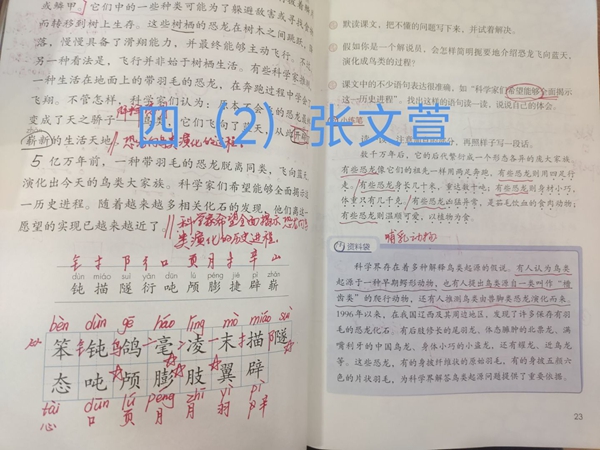 或鳞甲。它们中的一些种类可能为了躲避敌害或寻找食物
而转移到树上生存。这些树栖的恐龙在树木之间跳跃、降
落,慢慢具备了滑翔能力,并最终能够主动飞行。不过,
另一种看法是,飞行并非始于树栖生活。有些科学家推测,
一种生活在地面上的带羽毛的恐龙,在奔跑过程中学会了
飞翔。不管怎样,科学家们认为:原本不会飞的恐龙最终
变成了天之骄子——鸟类,它们飞向了蓝天,从此开辟了
崭新的生活天地。
5 亿万年前,一种带羽毛的恐龙脱离同类,飞向蓝天,
演化出今天的鸟类大家族。科学家们希望能够全面揭示这
一历史进程。随着越来越多相关化石的发现,他们离这一
愿望的实现已越来越近了。
科学家希望全面揭示恐龙向鸟
类演化的历史进程。
钅 扌 阝 彳 口 页 月 扌 辛 山
dùn miáo suì yǎn dūn lú péng jié pì zhǎn
钝 描 隧 衍 吨 颅 膨 捷 辟 崭
bèn dùn gē háo líng mò miáo suì
笨 钝 鸽 毫 凌 末 描 隧
态 吨 颅 膨 肢 翼 辟
tài dūn lú péng zhī yì pì
心 口 页 月 月 羽 辛
四(2)张文萱
默读课文,把不懂的问题写下来,并试着解决。
假如你是一个解说员,你会怎样简明扼要地介绍恐龙飞向蓝天、
演化成鸟类的过程?
课文中的不少语句表达很准确,如“科学家们希望能够全面揭示
这一历史进程”。找出这样的句子读一读,说说自己的体会。
小练笔
数千万年后,它的后代繁衍成一个形态各异的庞大家族。
有些恐龙像它们的祖先一样用两足奔跑,有些恐龙则用四足行
走。有些恐龙身长几十米,重达数十吨;有些恐龙则身材小巧,
体重只有几千克。有些恐龙凶猛异常,是茹毛饮血的食肉动物;
有些恐龙则温顺可爱,以植物为食。
哺乳动物
资料袋
科学界存在着多种解释鸟类起源的假说。有人认为鸟类
起源于一种早期鳄形动物,也有人提出鸟类源自一类叫作“槽
齿类”的爬行动物,还有人推测鸟类由兽脚类恐龙演化而来。
1996年以来,在我国辽西及其周边地区,发现了许多保存有羽
毛的恐龙化石。有后肢修长的尾羽龙、体态臃肿的北票龙、满
嘴利牙的中国鸟龙、身体小巧的小盗龙,还有耀龙、近鸟龙
等。这些恐龙,有的身披纤维状的原始羽毛,有的身披五颜六
色的片状羽毛,为科学家解答鸟类起源问题提供了重要依据。
23